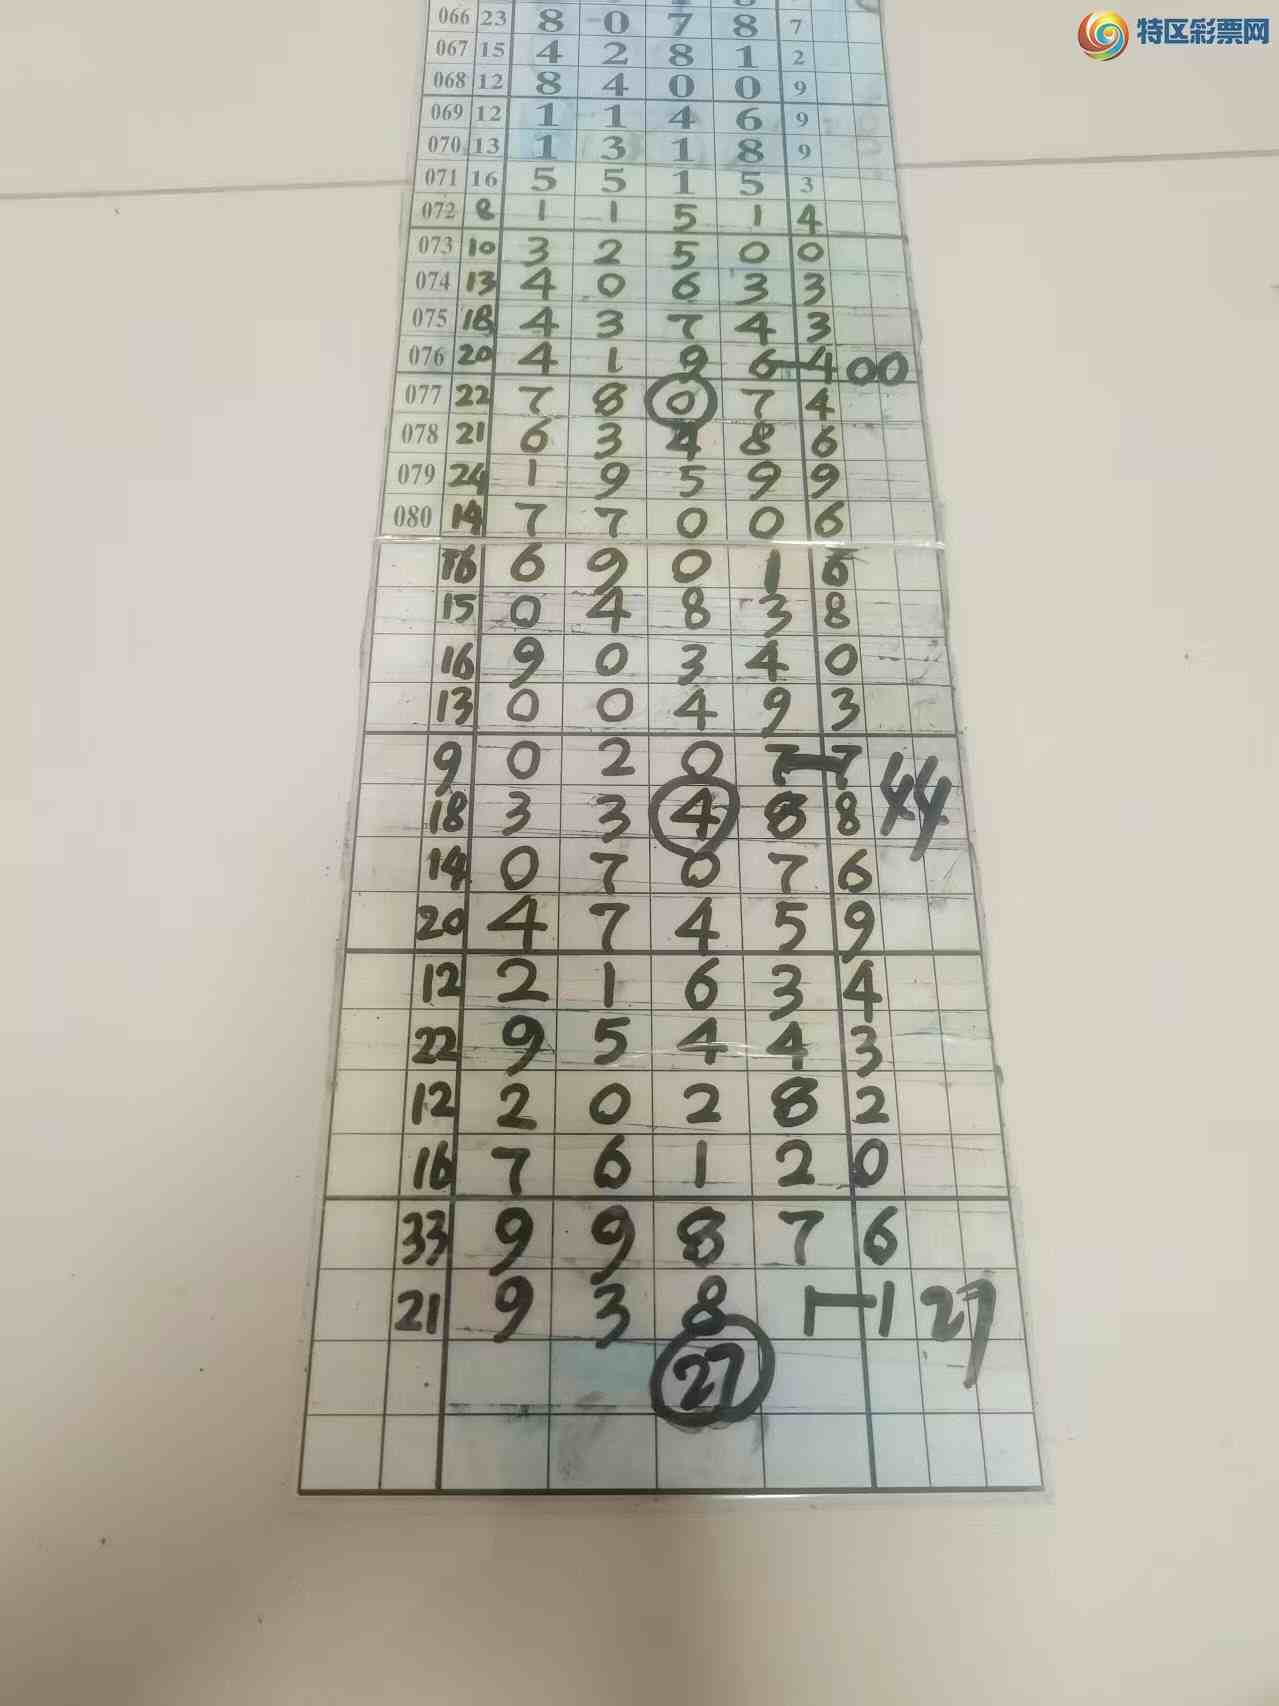 特区彩票网
066 23 8 0 7 8 7
067 15 4 2 8 1 2
068 12 8 4 0 0 9
069 12 1 1 4 6 9
070 13 1 3 1 8 9
071 16 5 5 1 5 3
072 8 1 1 5 1 4
073 10 3 2 5 0 0
074 13 4 0 6 3 3
075 18 4 3 7 4 3
076 20 4 1 9 6 4 00
077 22 7 8 0 7 4
078 21 6 3 4 8 6
079 24 1 9 5 9 9
080 14 7 7 0 0 6
16 6 9 0 1 6
15 0 4 8 3 8
16 9 0 3 4 0
13 0 0 4 9 3
9 0 2 0 7 7 44
18 3 3 4 8 8
14 0 7 0 7 6
20 4 7 4 5 9
12 2 1 6 3 4
22 9 5 4 4 3
12 2 0 2 8 2
16 7 6 1 2 0
33 9 9 8 7 6
21 9 3 8 1 1 27
27